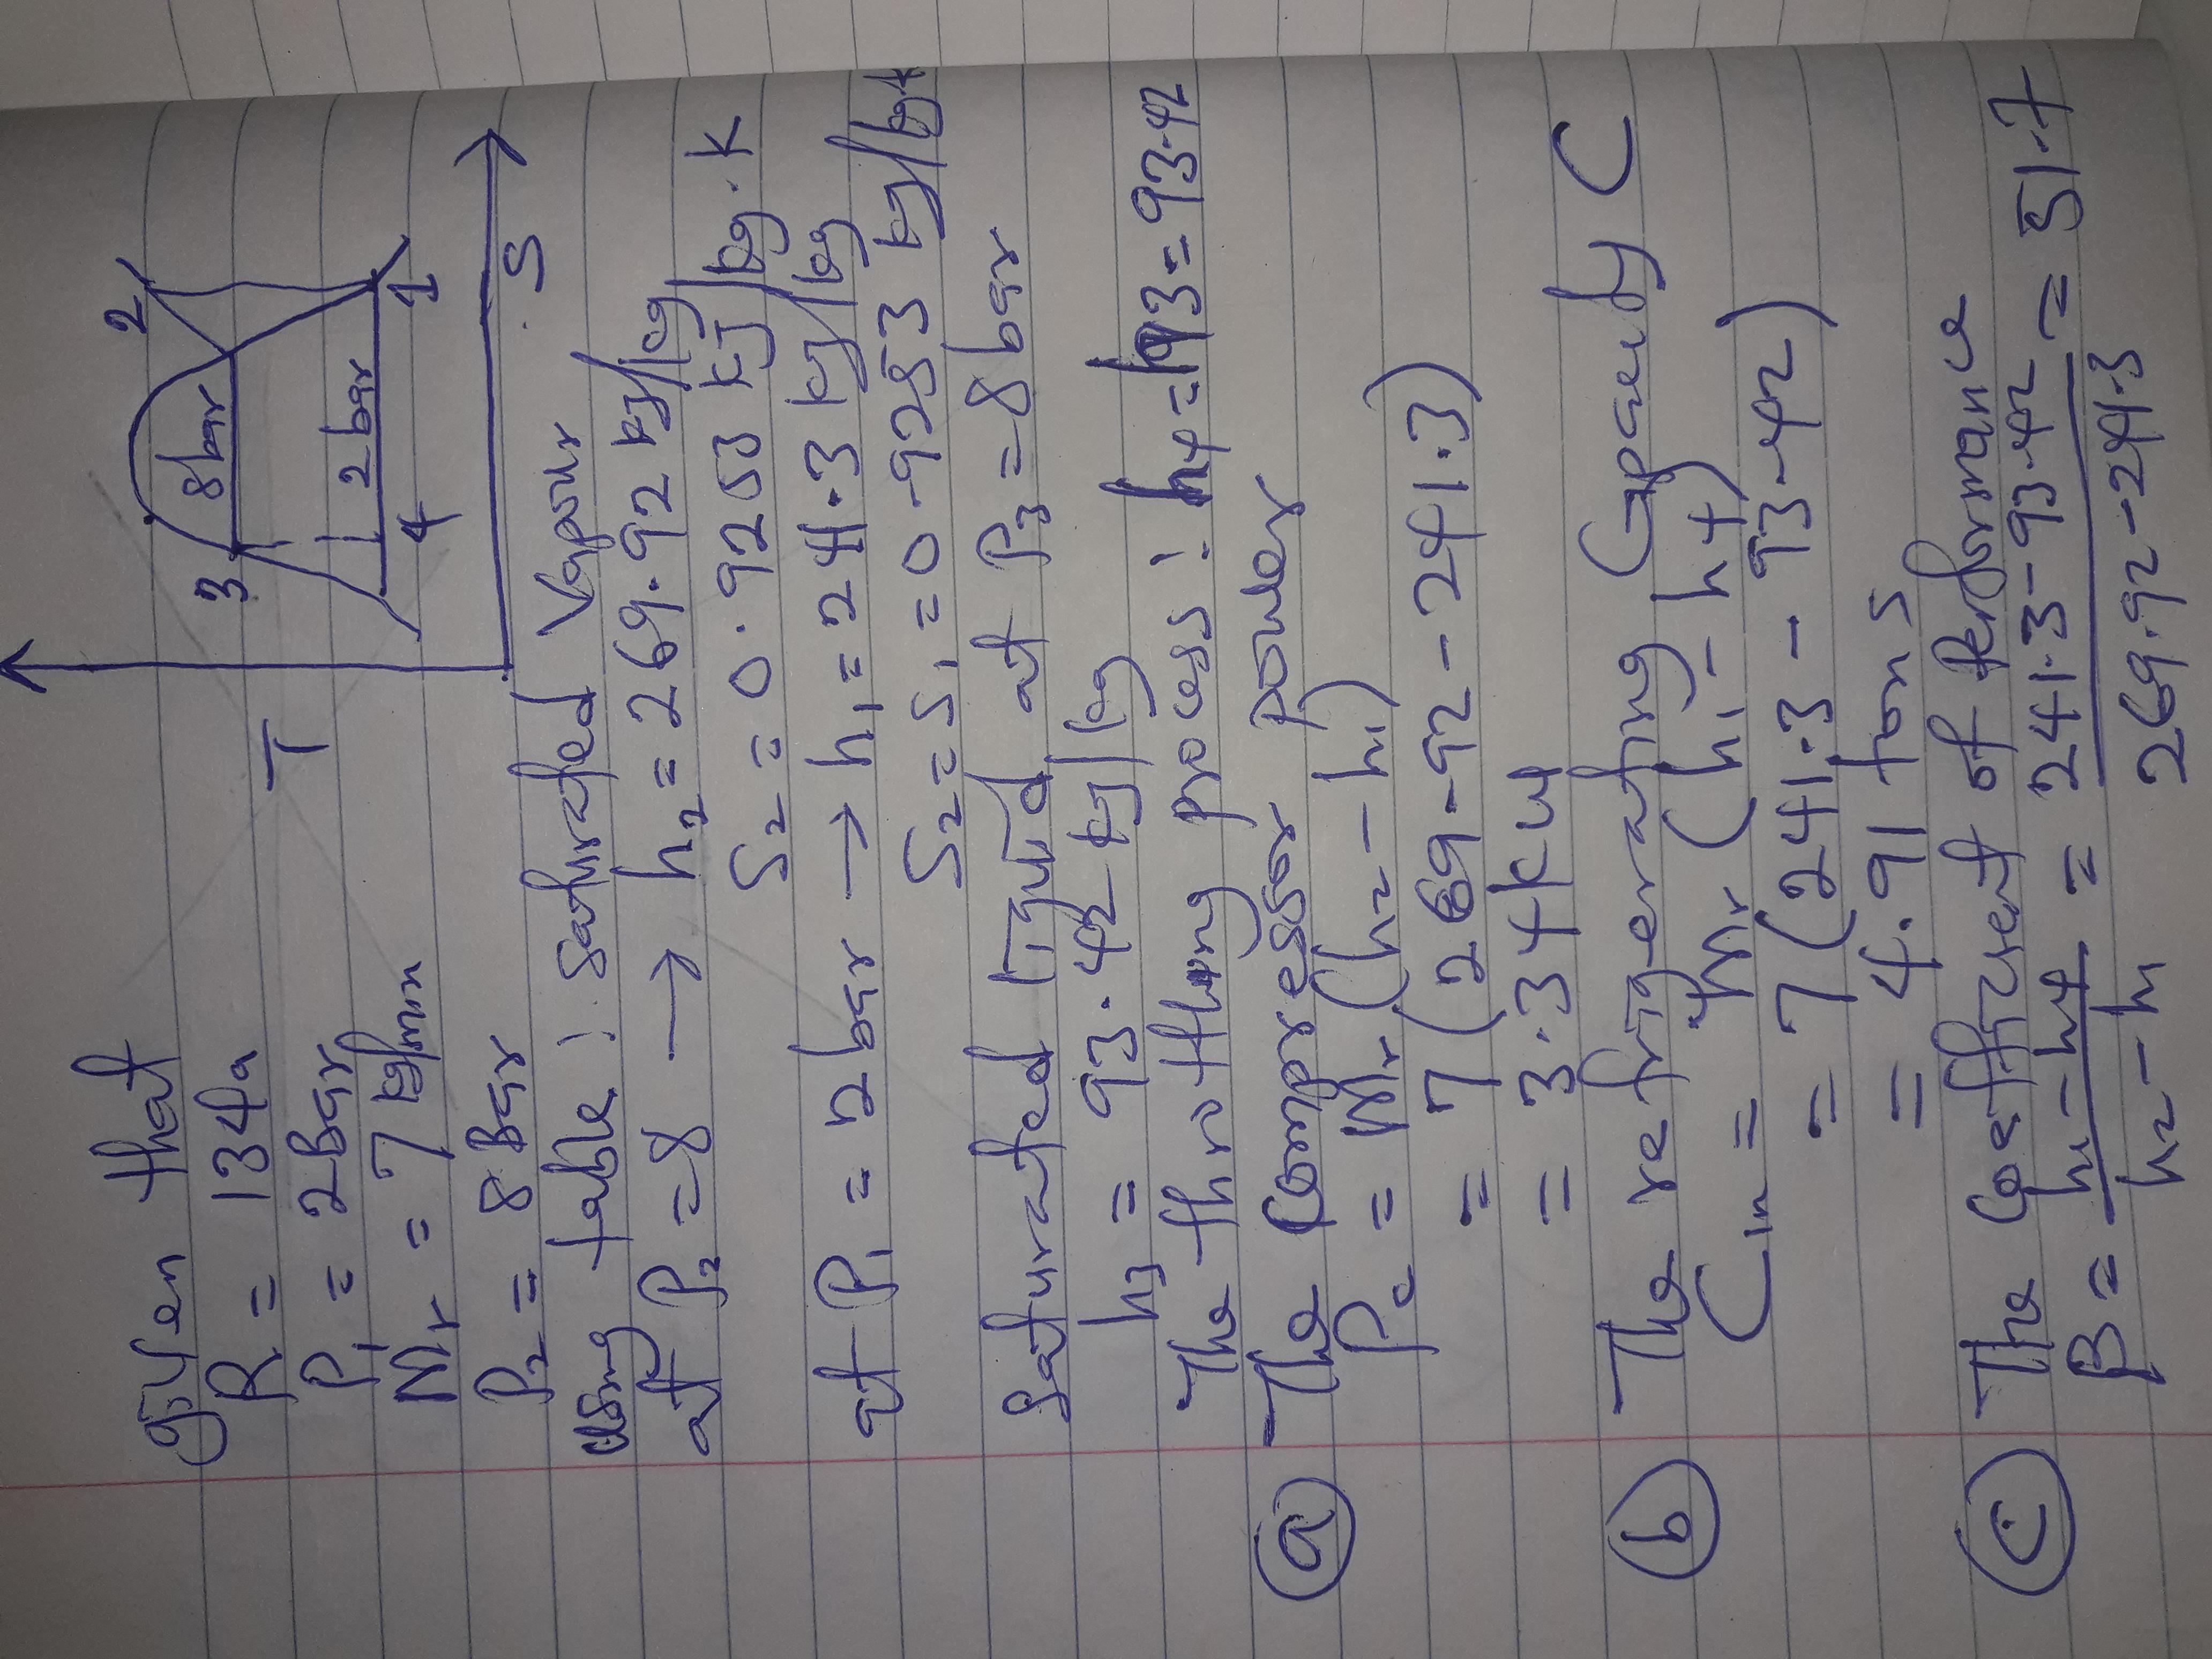 given that
R = 134a
P₁ = 2Bar
Mr = 7 kg/min
P₂ = 8 Bar
T
2
3
8bar
2 bar
4
1
S
using table : saturated Vapour
at P₂ = 8 → h₂ = 269.92 kJ/kg
S₂ = 0.9253 kJ/kg.K
at P₁ = 2bar → h₁ = 241.3 kJ/kg
S₂ = S₁ = 0.9253 kJ/kgk
Saturated liquid at P₃ = 8 bar
h₃ = 93.42 kJ/kg
The throttling process : h₄ = h3 = 93.42
ⓐ The Compressor power
Pc = Mr (h₂ - h₁)
= 7 (269.92 - 241.3)
= 3.34 kw
ⓑ The refrigerating Capacity C
Cin = mr (h₁ - h4)
= 7 (241.3 - 93.42)
= 4.91 tons
ⓒ The Coefficient of Performance
β = h₁ - h4 / h₂ - h₁ = 241.3 - 93.42 / 269.92 - 241.3 = 51.7